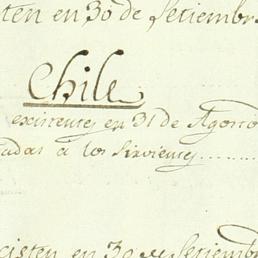 isten en 30 de Setiembr
Chile
existentes en 31 de Agosto
adas a los sirvientes........
cisten en 30 de Setiembr